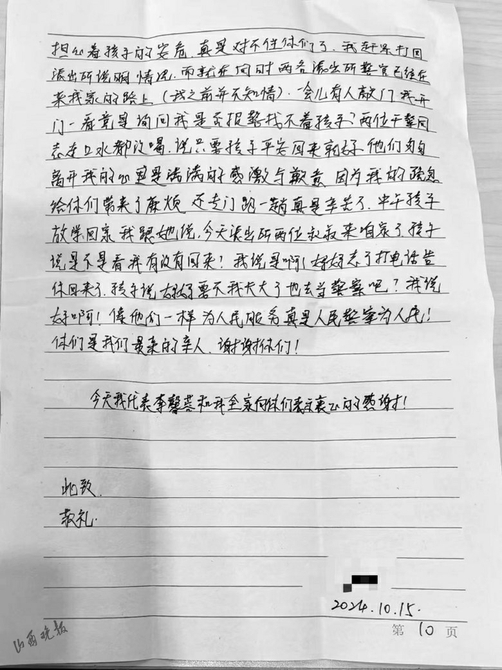 担心着孩子的安危，真是对不住你们了，我赶紧打回
派出所说明情况，而就在同时两名派出所警官已经在
来我家的路上（我之前并不知情）。一会儿有人敲门我开
门一看竟是询问我是否报警找不着孩子？两位干警同
志走上水都没喝，说只要孩子平安回来就好，他们
离开我的心里是满满的感激与歉意，因为我的疏忽
给你们带来了麻烦，还专门跑一趟真是辛苦了，中午孩子
放学回家，我跟她说，今天派出所两位叔叔来咱家了，孩子
说是不是看我有没有回来？我说是啊！妈妈忘了打电话告
你回来了，孩子说妈妈要不我长大了也去当警察吧？我说
好啊！像他们一样为人民服务真是人民警察为人民！
你们是我们最亲的亲人，谢谢你们！
今天我代表李馨 和我全家向你们表示衷心的感谢！
此致
敬礼
2024.10.15.
第 10 页
山西晚报